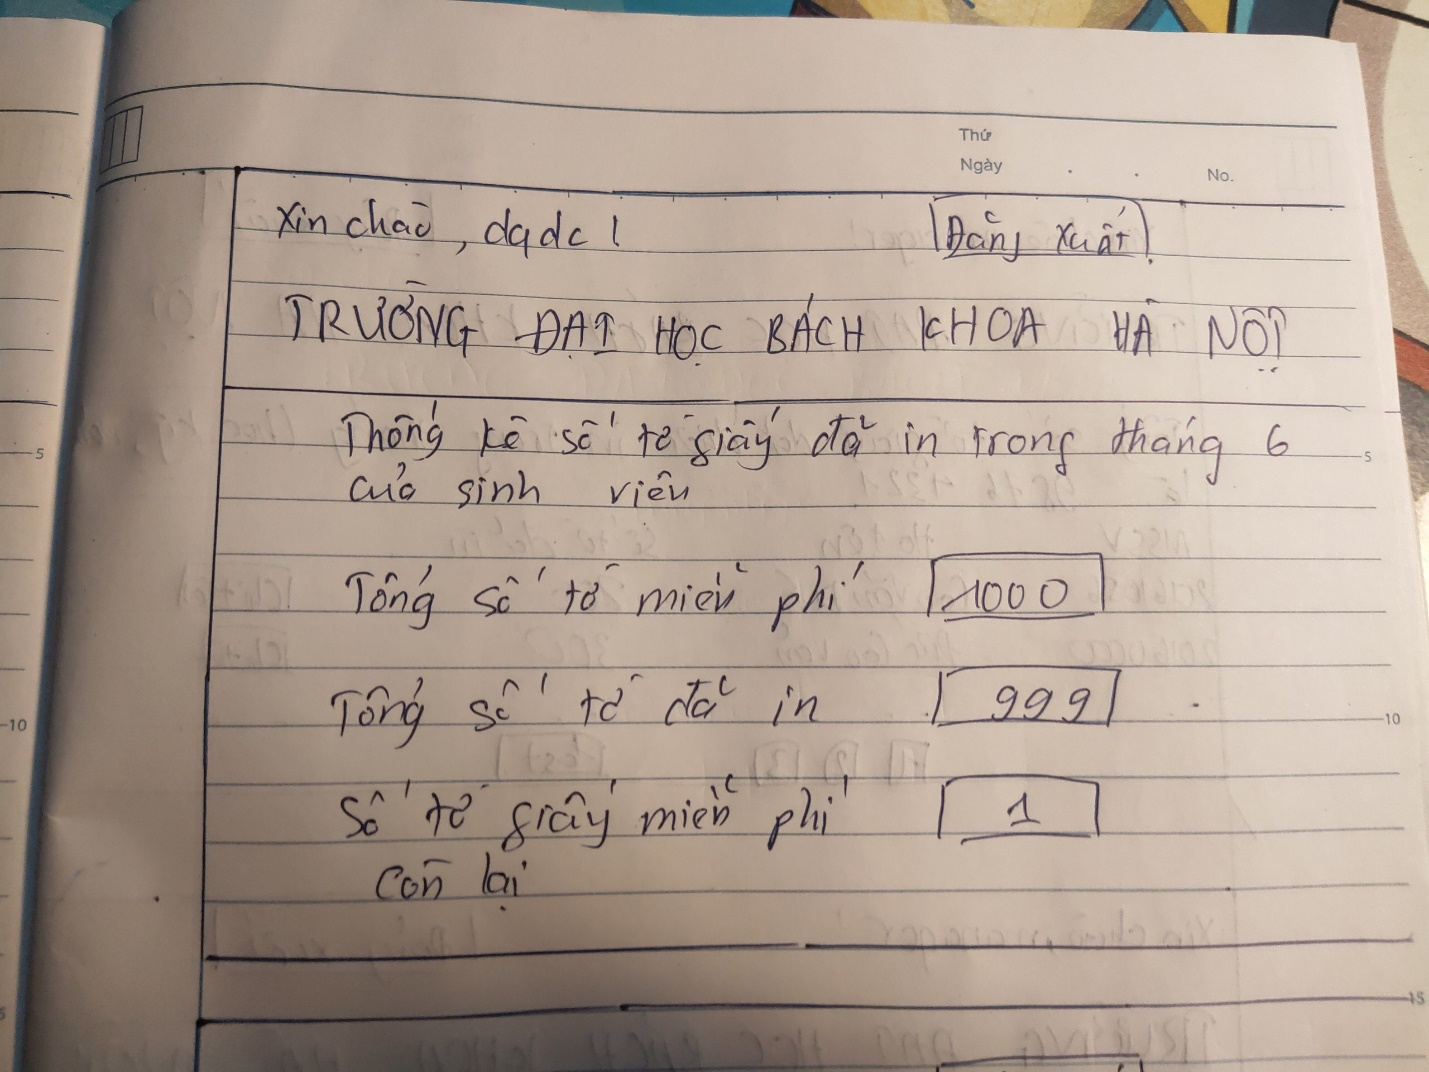 Thứ
Ngày . . No.
Xin chào, dqdc! Đăng xuất
TRƯỜNG ĐẠI HỌC BÁCH KHOA HÀ NỘI
Thống kê số tờ giấy đã in trong tháng 6
của sinh viên
Tổng số tờ miễn phí 1000
Tổng số tờ đã in 999
Số tờ giấy miễn phí 1
còn lại
5
10
15
5
10